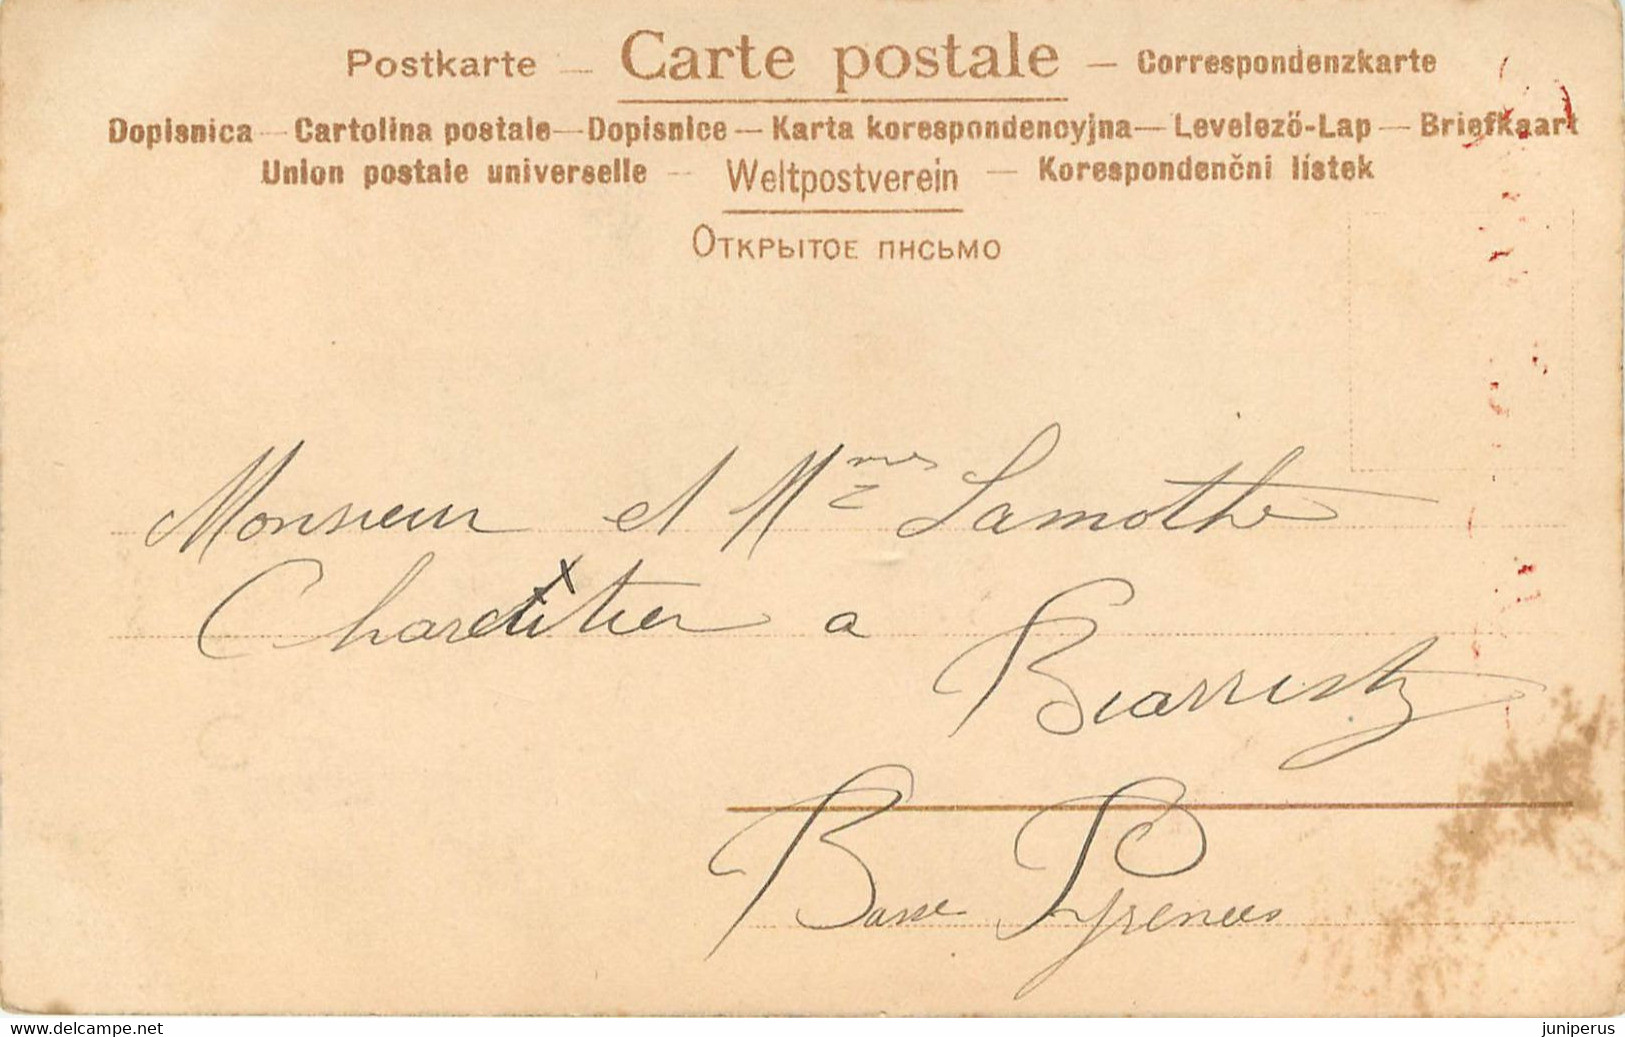 Postkarte — Carte postale — Correspondenzkarte
Dopisnica — Cartolina postale — Dopisnice — Karta korespondencyjna — Levelező-Lap — Briefkaart
Union postale universelle — Weltpostverein — Korespondenční lístek
Открытое письмо
Monsieur et Mmes Lamothe
a
Biarristz
Basse Pyrenees
www.delcampe.net
juniperus